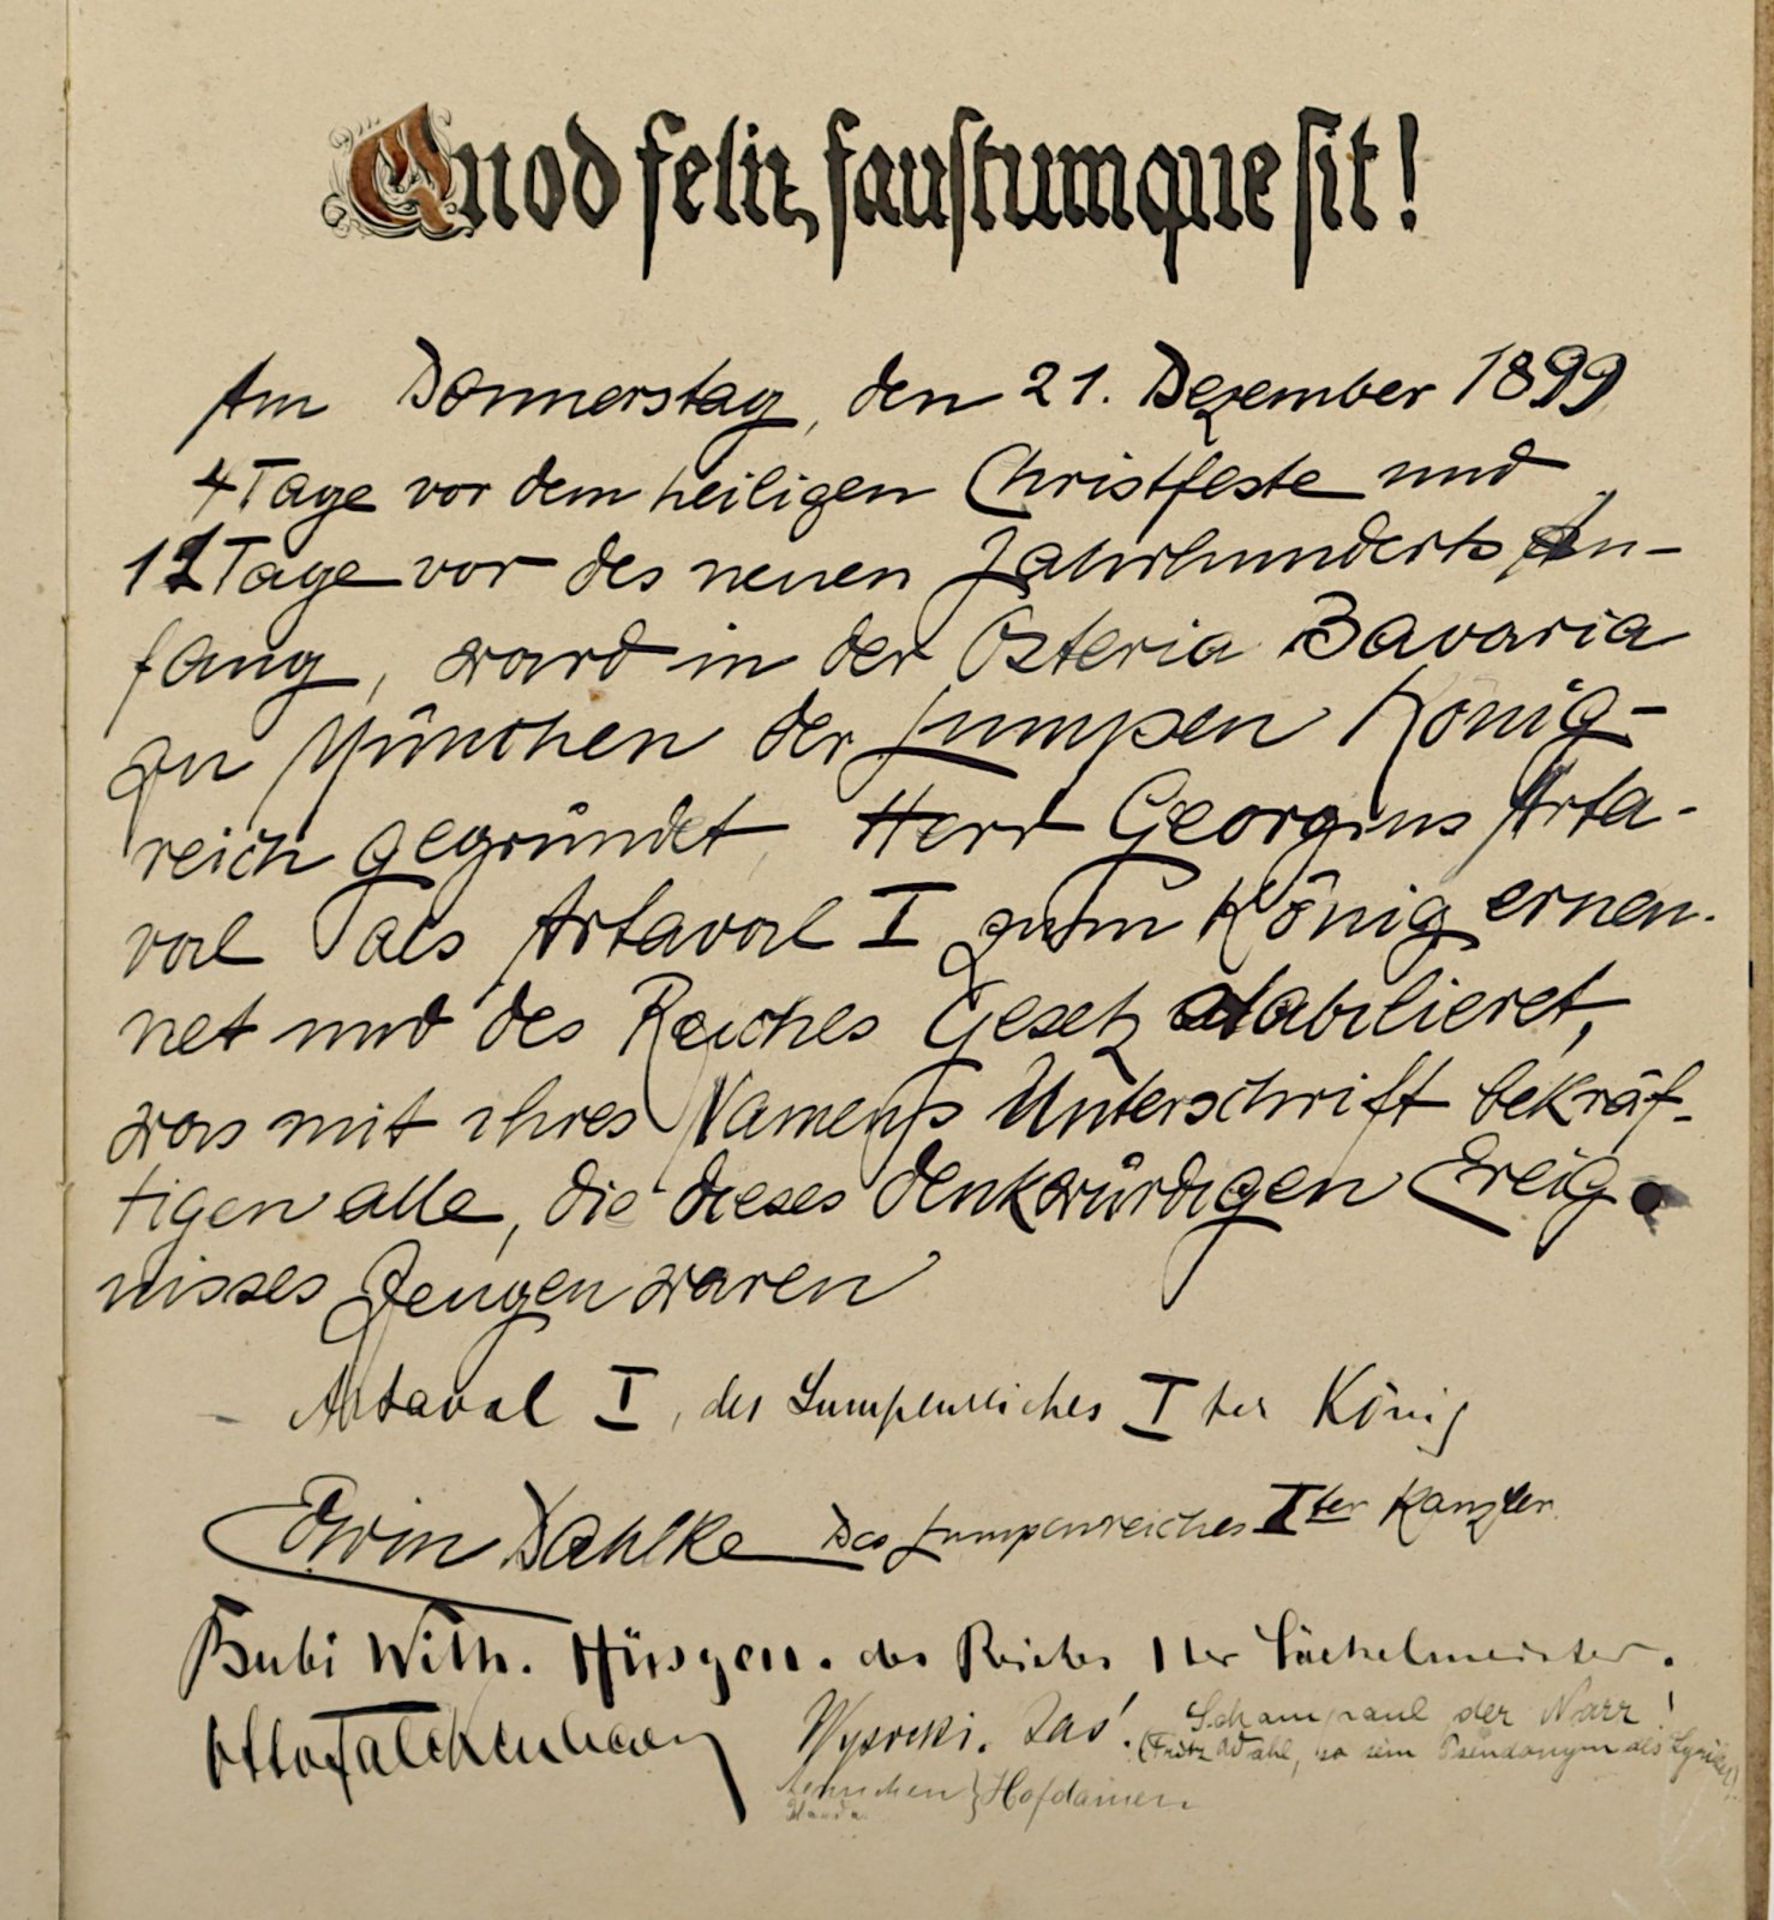 Quod felix, faustumque sit!
Am Donnerstag, den 21. Dezember 1899
4 Tage vor dem heiligen Christfeste und
11 Tage vor des neuen Jahrhunderts An-
fang, ward in der Osteria Bavaria
zu München der Lumpen König-
reich gegründet, Herr Georgius Arta-
val als Artaval I zum König ernen-
net und des Reiches Gesetz stabilieret,
was mit ihres Namens Unterschrift bekräf-
tigen alle, die dieses denkwürdigen Ereig-
nisses Zeugen waren
Artaval I, des Lumpenreiches I ter König
Erwin Dahlke Des Lumpenreiches I ter Kanzler
Bubi Wilh. Hüsgen. des Reiches 1 ter Säckelmeister.
Otto Falckenberg Wysocki.
Schampaul der Narr!
(Fritz Wahl, so sein Pseudonym als Lyriker)
Hofdamen